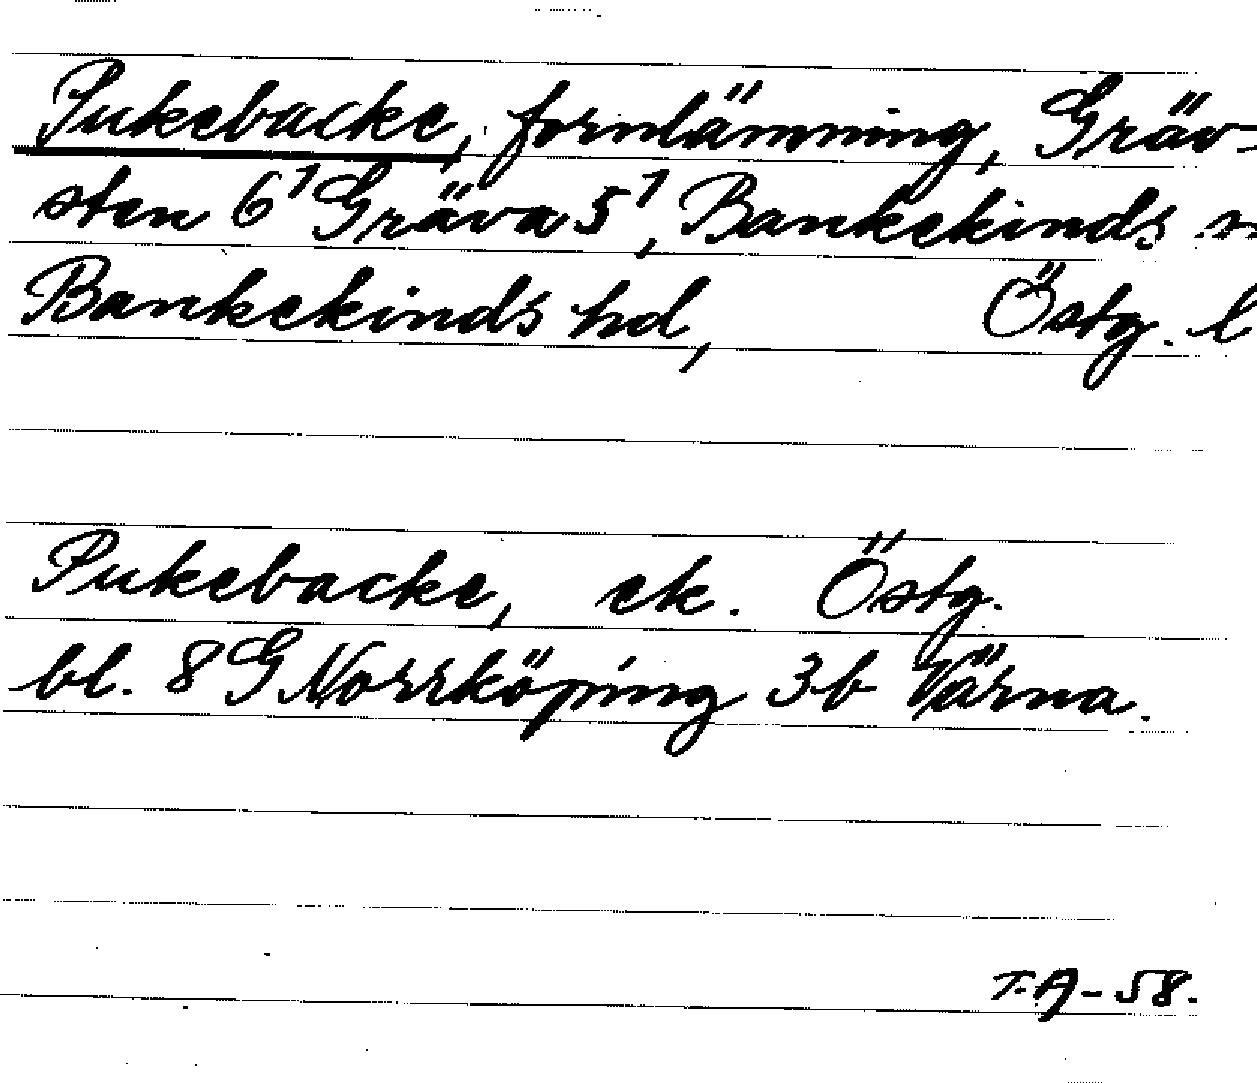 Pukebacke, fornlämning, Gräv-
sten 6¹ Gräva 5¹, Bankekinds
Bankekinds hd, Östg. l
Pukebacke, ek. Östg.
bl. 8 G Norrköping 3b Värna.
T.A-58.